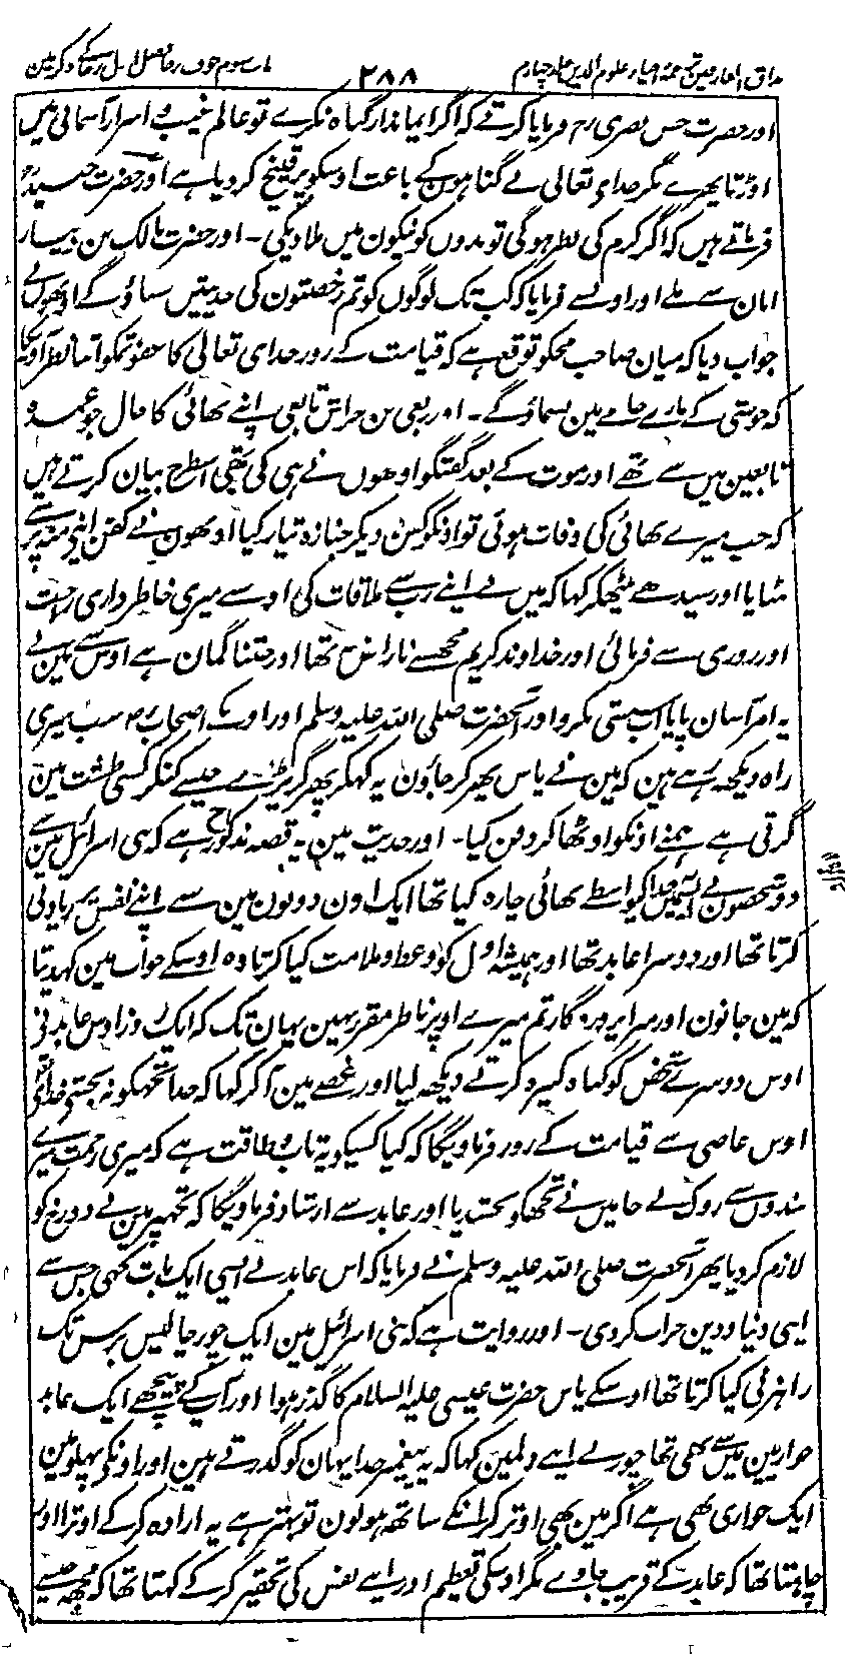 مذاق العارفین ترجمہ احیاء علوم الدین جلد چہارم ۲۸۸
اور حضرت حسن بصری رح فرمایا کرتے کہ اگر ایماندار گناہ نکرے تو عالم غیب و اسرار آسمانی میں
اوڑتا پھرے مگر خداے تعالی نے گناہون کے باعث اوسکو پر قینچ کر دیا ہے اور حضرت جنید رح
فرماتے ہیں کہ اگر کرم کی نظر ہوگی تو بدوں کو نیکون میں ملا دیگی - اور حضرت مالک بن دینار
ابان سے ملے اور اونسے فرمایا کہ کب تک لوگوں کو تم رخصتون کی حدیثیں سناؤ گے اونھوں نے
جواب دیا کہ میان صاحب مجکو توقع ہے کہ قیامت کے روز خدای تعالی کا عفو تمکو اتنا نظر آویگا
کہ خوشی کے مارے جامے مین نسماؤ گے - اور ربعی بن حراش تابعی اپنے بھائی کا حال جو عمدہ
تابعین میں سے تھے اور موت کے بعد گفتگو اونھوں نے ہی کی تھی اسطرح بیان کرتے ہیں
کہ جب میرے بھائی کی وفات ہوئی تو اونکو کفن دیکر جنازہ تیار کیا اونھون نے کفن اپنے منہ پر سے
ہٹایا اور سیدھے بیٹھکر کہا کہ میں نے اپنے رب سے ملاقات کی اوسنے میری خاطرداری راحت
اور روزی سے فرمائی اور خداوند کریم مجھسے ناراض نتھا اور جتنا گمان ہے اوس سے مین نے
یہ امر آسان پایا اب سستی نکرو اور آنحضرت صلی اللہ علیہ وسلم اور اونکے اصحاب رض سب میری
راہ دیکھ رہے ہین کہ مین نکے پاس پھر کر جاؤن یہ کہکر پھر گر پڑے جیسے کنکر کسی طشت مین
گرتی ہے ہمنے اونکو اوٹھا کر دفن کیا - اور حدیث مین یہ قصہ مذکور ہے کہ بنی اسرائیل مین سے
دو شخصون نے آپسمیں خدا کیواسطے بھائی چارہ کیا تھا ایک اون دونون مین سے اپنے نفس پر زیادتی
کرتا تھا اور دوسرا عابد تھا اور ہمیشہ اول کو وعظ و ملامت کیا کرتا وہ اوسکے جواب مین کہدیتا
کہ مین جانون اور میرا پروردگار تم میرے اوپر ناظر مقرر نہین یہان تک کہ ایک روز اوس عابد نے
اوس دوسرے شخص کو گناہ کبیرہ کرتے دیکھ لیا اور غصے مین آ کر کہا کہ خدا تجھکو نہ بخشے خدائیتعالی
اوس عاصی سے قیامت کے روز فرماویگا کہ کیا کسیکو یہ تاب و طاقت ہے کہ میری رحمت میرے
بندوں سے روک لے جا میں نے تجھکو بخشدیا اور عابد سے ارشاد فرماویگا کہ تجھپر مین نے دوزخ کو
لازم کر دیا پھر آنحضرت صلی اللہ علیہ وسلم نے فرمایا کہ اس عابد نے ایسی ایک بات کہی جس سے
اپنی دنیا و دین خراب کر دی - اور روایت ہے کہ بنی اسرائیل مین ایک چور چالیس برس تک
راہزنی کیا کرتا تھا اوسکے پاس حضرت عیسی علیہ السلام کا گذر ہوا اور آپکے پیچھے ایک عابد
حواریین میں سے بھی تھا چور نے اپنے دلمین کہا کہ یہ پیغمبر خدا یہان کو گذرتے ہین اور اونکے پہلو مین
ایک حواری بھی ہے اگر مین بھی اوتر کر انکے ساتھ ہو لون تو بہتر ہے یہ ارادہ کر کے اوترا اور
چاہتا تھا کہ عابد کے قریب جاوے مگر اوسکی تعظیم اور اپنے نفس کی تحقیر کر کے کہتا تھا کہ مجھ جیسے